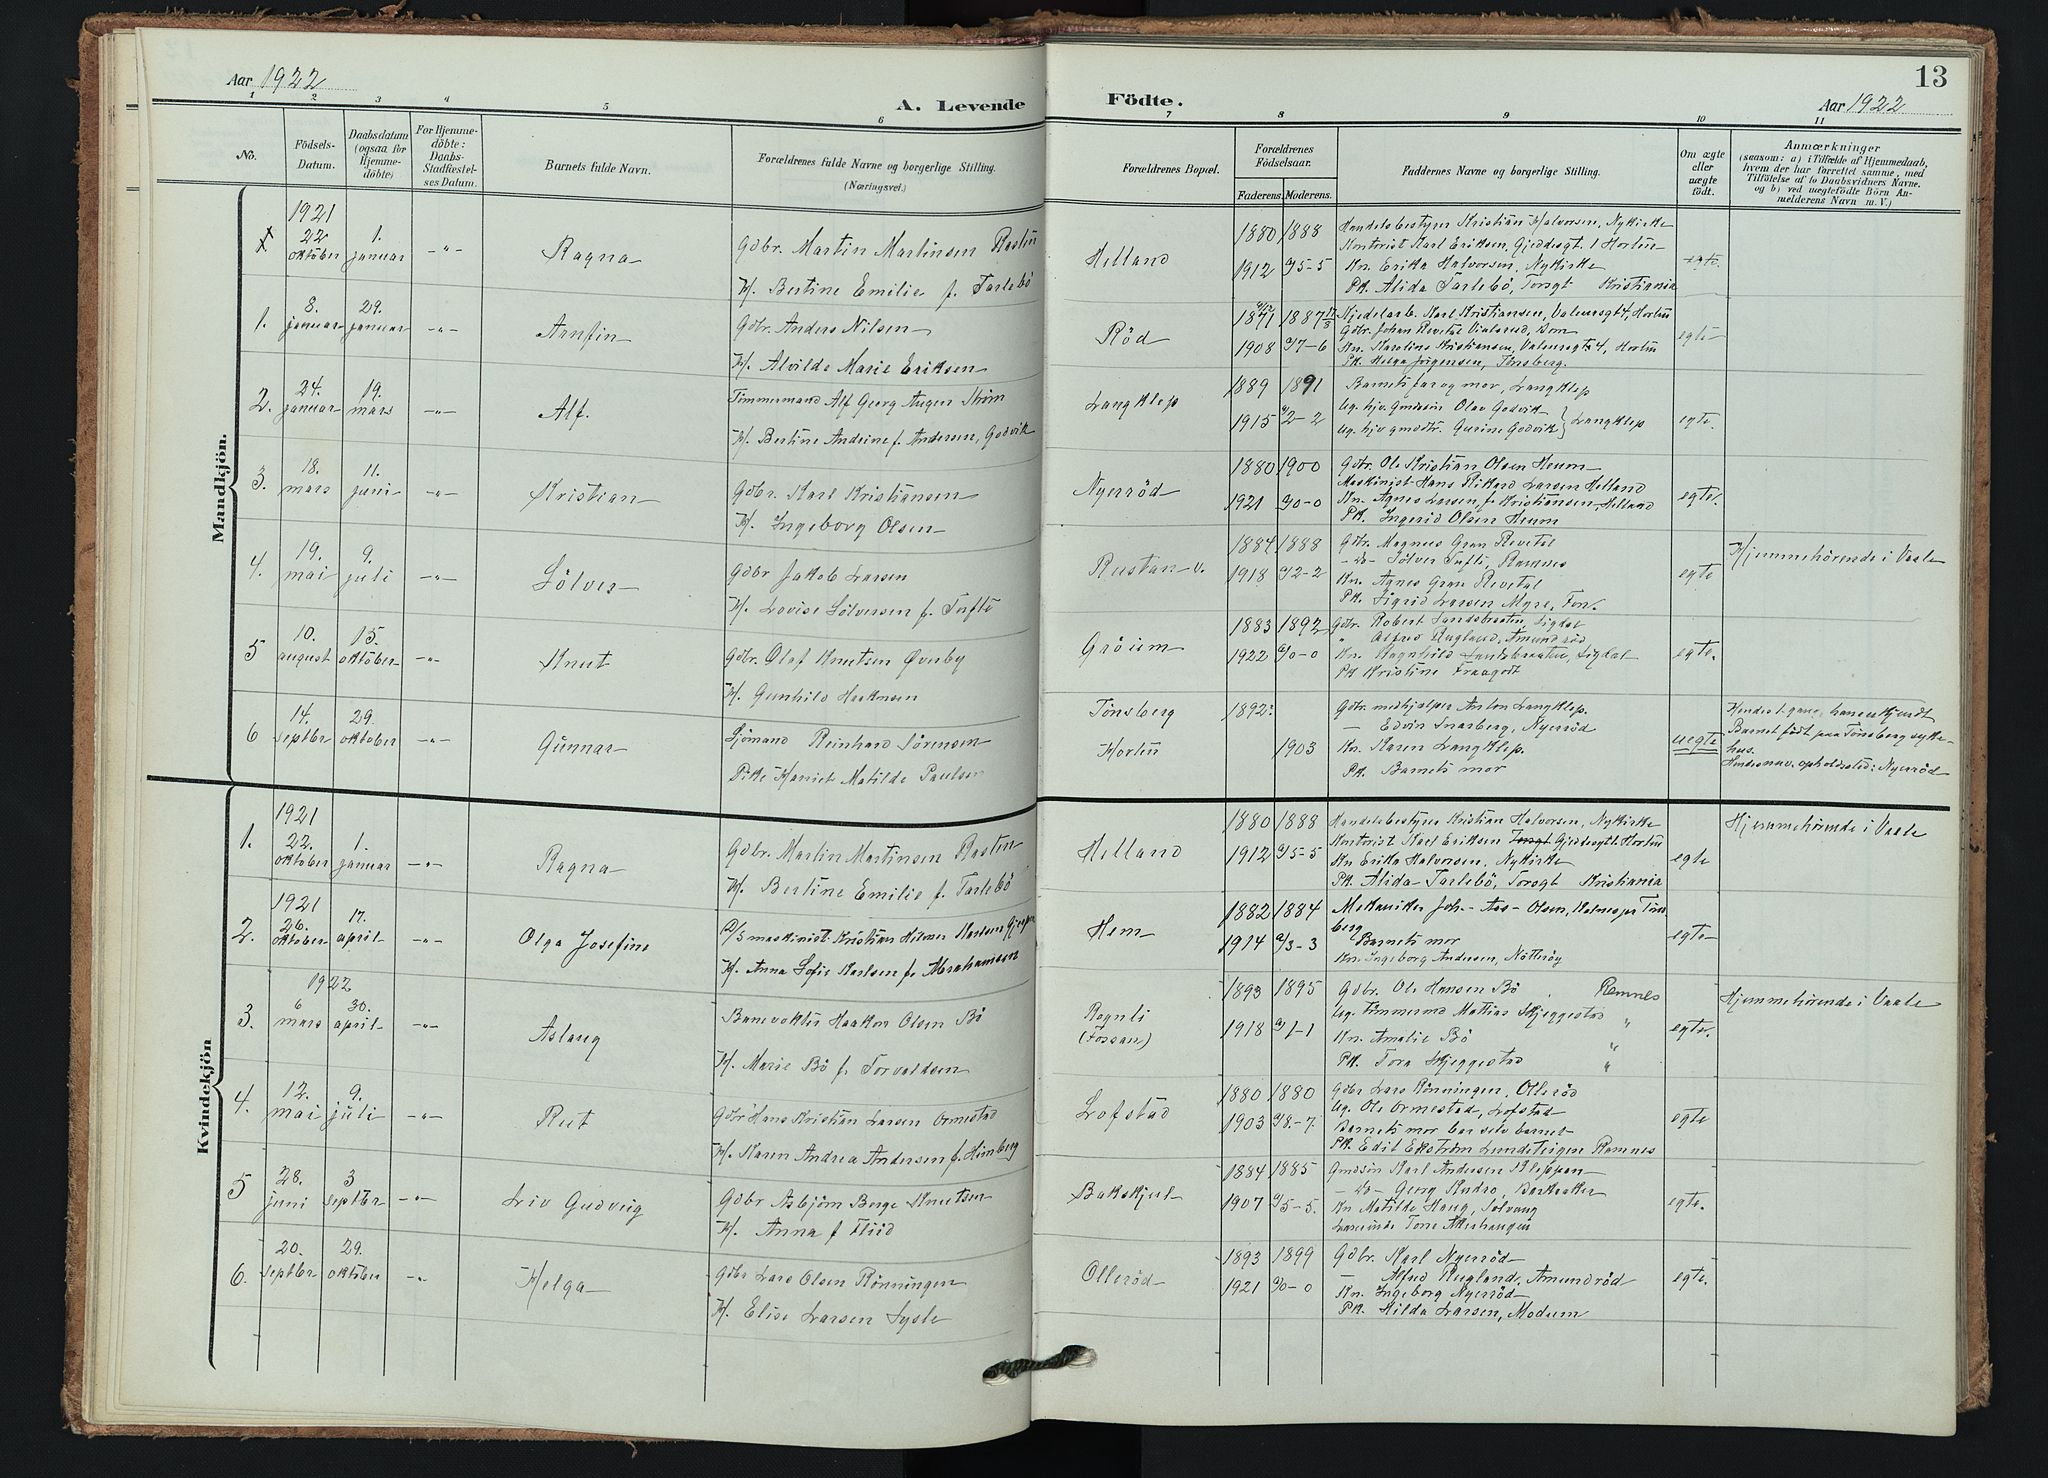 13
Aar 1922
A. Levende Födte.
Aar 1922
1 2 3 4 5 6 7 8 9 10 11
No.
Födsels-Datum.
Daabsdatum (ogsaa for Hjemmedöbte)
For Hjemmedöbte: Daabs-Stadfæstelses Datum.
Barnets fulde Navn.
Forældrenes fulde Navne og borgerlige Stilling. (Næringsvei.)
Forældrenes Bopæl.
Forældrenes Födselsaar.
Faderens. Moderens.
Faddernes Navne og borgerlige Stilling.
Om ægte eller uægte födt.
Anmærkninger
(saasom: a) i Tilfælde af Hjemmedaab, hvem der har forrettet samme, med Tilföielse af to Daabsvidners Navne. og b) ved uægtefödte Börn Anmelderens Navn m. V.)
Mandkjön.
1921
1 22 oktober 1. januar -"- Ragna
Gdbr. Martin Martinsen Rastin
H. Bertine Emilie f. Tarlebö
Helland
1880 1888
1912 5-5
Handelsbestyrer Kristian Halvorsen, Nykirke
Kontorist Karl Eriksen, Gjeddesgt. 1 Horten
Kn. Erika Halvorsen, Nykirke
Pk. Alida Tarlebö, Torsgt Kristiania
egte.
1. 8. januar 29. januar -"- Arnfin
Gdbr. Anders Nilsen
H. Alvilde Marie Eriksen
Röd
1871 1887
1908 7-6
Kjedelarb. Karl Kristiansen, Valeursgt 4, Horten
Gdbr. Johan Revetal
Kn. Karoline Kristiansen, Valeursgt 4, Horten
Pk. Helga Jörgensen, Tönsberg.
egte
2. 24. januar 19. mars -"- Alf.
Tömmermand Alf Georg August Ström
H. Bertine Andrine f. Andersen, Godvik
Langklep
1889 1891
1915 2-2
Barnets far og mor, Langklep
Ug. hjv. gmdssön Olav Godvik
Ug. hjv gmdtr. Gurine Godvik } Langklep
egte.
3. 18. mars 11. juni -"- Kristian
Gdbr. Karl Kristiansen
H. Ingeborg Olsen
Nyerröd
1880 1900
1921 0-0
Gdbr. Ole Kristian Olsen Heum
Maskinist Hans Rikard Larsen Helland
Kn. Agnes Larsen f. Kristiansen, Helland
Pk. Ingerid Olsen Heum
egte.
4. 19. mai 9. juli -"- Sölver
Gdbr Jakob Larsen
H. Lovise Sölversen f. Tufte
Rustan v.
1884 1888
1918 2-2
Gdbr. Magnus Gran Revetal
-do- Sölver Tufte, Ramnes
Kn. Agnes Gran Revetal
Pk. Sigrid Larsen Myre, Ton.
egte
Hjemmehörende i Vaale
5 10. august 15. oktober -"- Knut
Gdbr. Olaf Knutsen Överby
H. Gunhild Haaknsen
Gröium
1883 1892
1922 0-0
Gdbr. Robert Landsbraaten, Sigdal
" Alfred Rugland, Amundröd
Kn. Ragnhild Landsbraaten, Sigdal
Pk Kristine Fraagott
egte.
6 14. septbr 29. oktober -"- Gunnar
Sjömand Reinhard Sörensen
Pike Harriet Matilde Paulsen
Tönsberg
Horten
1892.
1903
Gdbr. medhjelper Anton Langklep.
— Edvin Snarberg, Nyerröd
Kn. Karen Langklep.
Pk. Barnets mor
uegte
Barnet födt paa Tönsberg sykehus.
opholdssted: Nyerröd
Kvindekjön
1921
1. 22. oktober 1. januar -"- Ragna
Gdbr. Martin Martinsen Rastin
H. Bertine Emilie f. Tarlebö
Helland
1880 1888
1912 5-5
Handelsbestyrer Kristian Halvorsen, Nykirke
Kontorist Karl Eriksen Torsgt Gjeddesgt 1. Horten
Kn Erika Halvorsen, Nykirke
Pk. Alida Tarlebö, Torsgt Kristiania
egte
Hjemmehörende i Vaale
1921
2. 26. oktober 17. april -"- Olga Josefine
maskinist Kristian Hilmer Karlsen
H. Anna Sofie Karlsen f. Abrahamsen
Hem
1882 1884
1914 3-3
Mekaniker Joh. Olsen, Kalnes pr Tönsberg
Barnets mor
Kn. Ingeborg Andersen, Nötteröy
egte
1922
3. 6 mars 30. april -"- Aslaug
Banevokter Haakon Olsen Bö
H. Marie Bö f. Torvaldsen
Rognli
(Fossan)
1893 1895
1918 1-1
Gdbr. Ole Hansen Bö, Ramnes
Ug. Tömmermd Mattias Skjeggestad "
Kn. Amalie Bö "
Pk. Tora Skjeggestad "
egte.
Hjemmehörende i Vaale
4. 12. mai 9. juli -"- Rut
Gdbr Hans Kristian Larsen Ormestad
H. Karen Andrea Andersen f. Himberg
Lofstad
1880 1880
1903 8.-7.
Gdbr Lars Rönningen, Olleröd
Ug. Ole Ormestad, Lofstad
Barnets mor bar selv barnet
Pk. Edit Ekström Lundeteigen Ramnes
egte
5 28. juni 3 septbr -"- Liv Gudveig
Gdbr Asbjörn Berge Knutsen
H. Anna f Flüd
Bakskjul
1884 1885
1907 5-5.
Gmdssön Karl Andersen Kleppan
-do- Georg Rudso, Borkaaker
Kn Matilde Haug, Solvang
Lærerinde Tone Akerhaugen
egte.
6. 20. septbr 29. oktober -"- Helga
Gdbr Lars Olsen Rönningen
H. Elise Larsen Sysle
Olleröd
1893 1899
1921 0-0
Gdbr. Karl Nyerröd
— Alfred Rugland, Amundröd
Kn. Ingeborg Nyerröd
Pk. Hilda Larsen, Modum
egte.